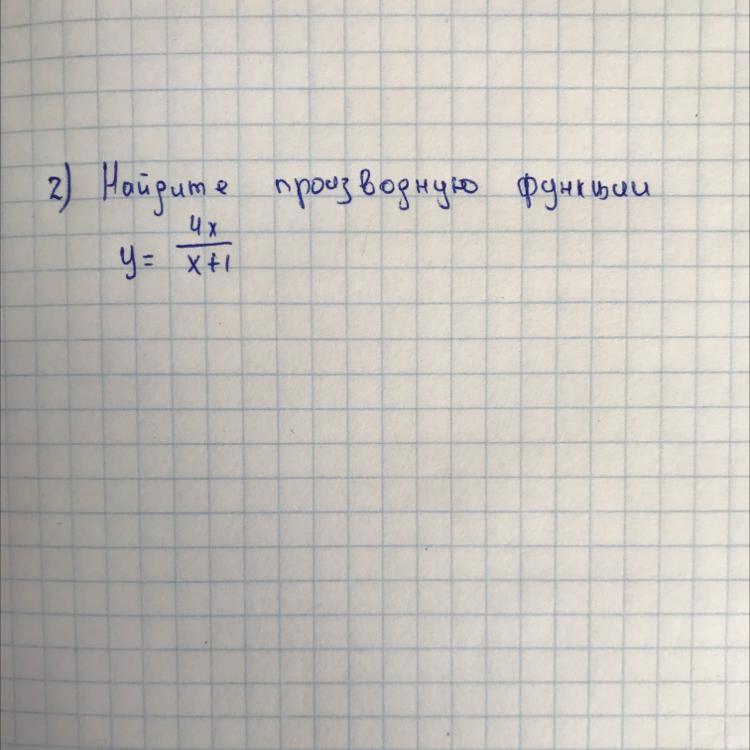 2) Найдите производную функции
y = 4x / x+1